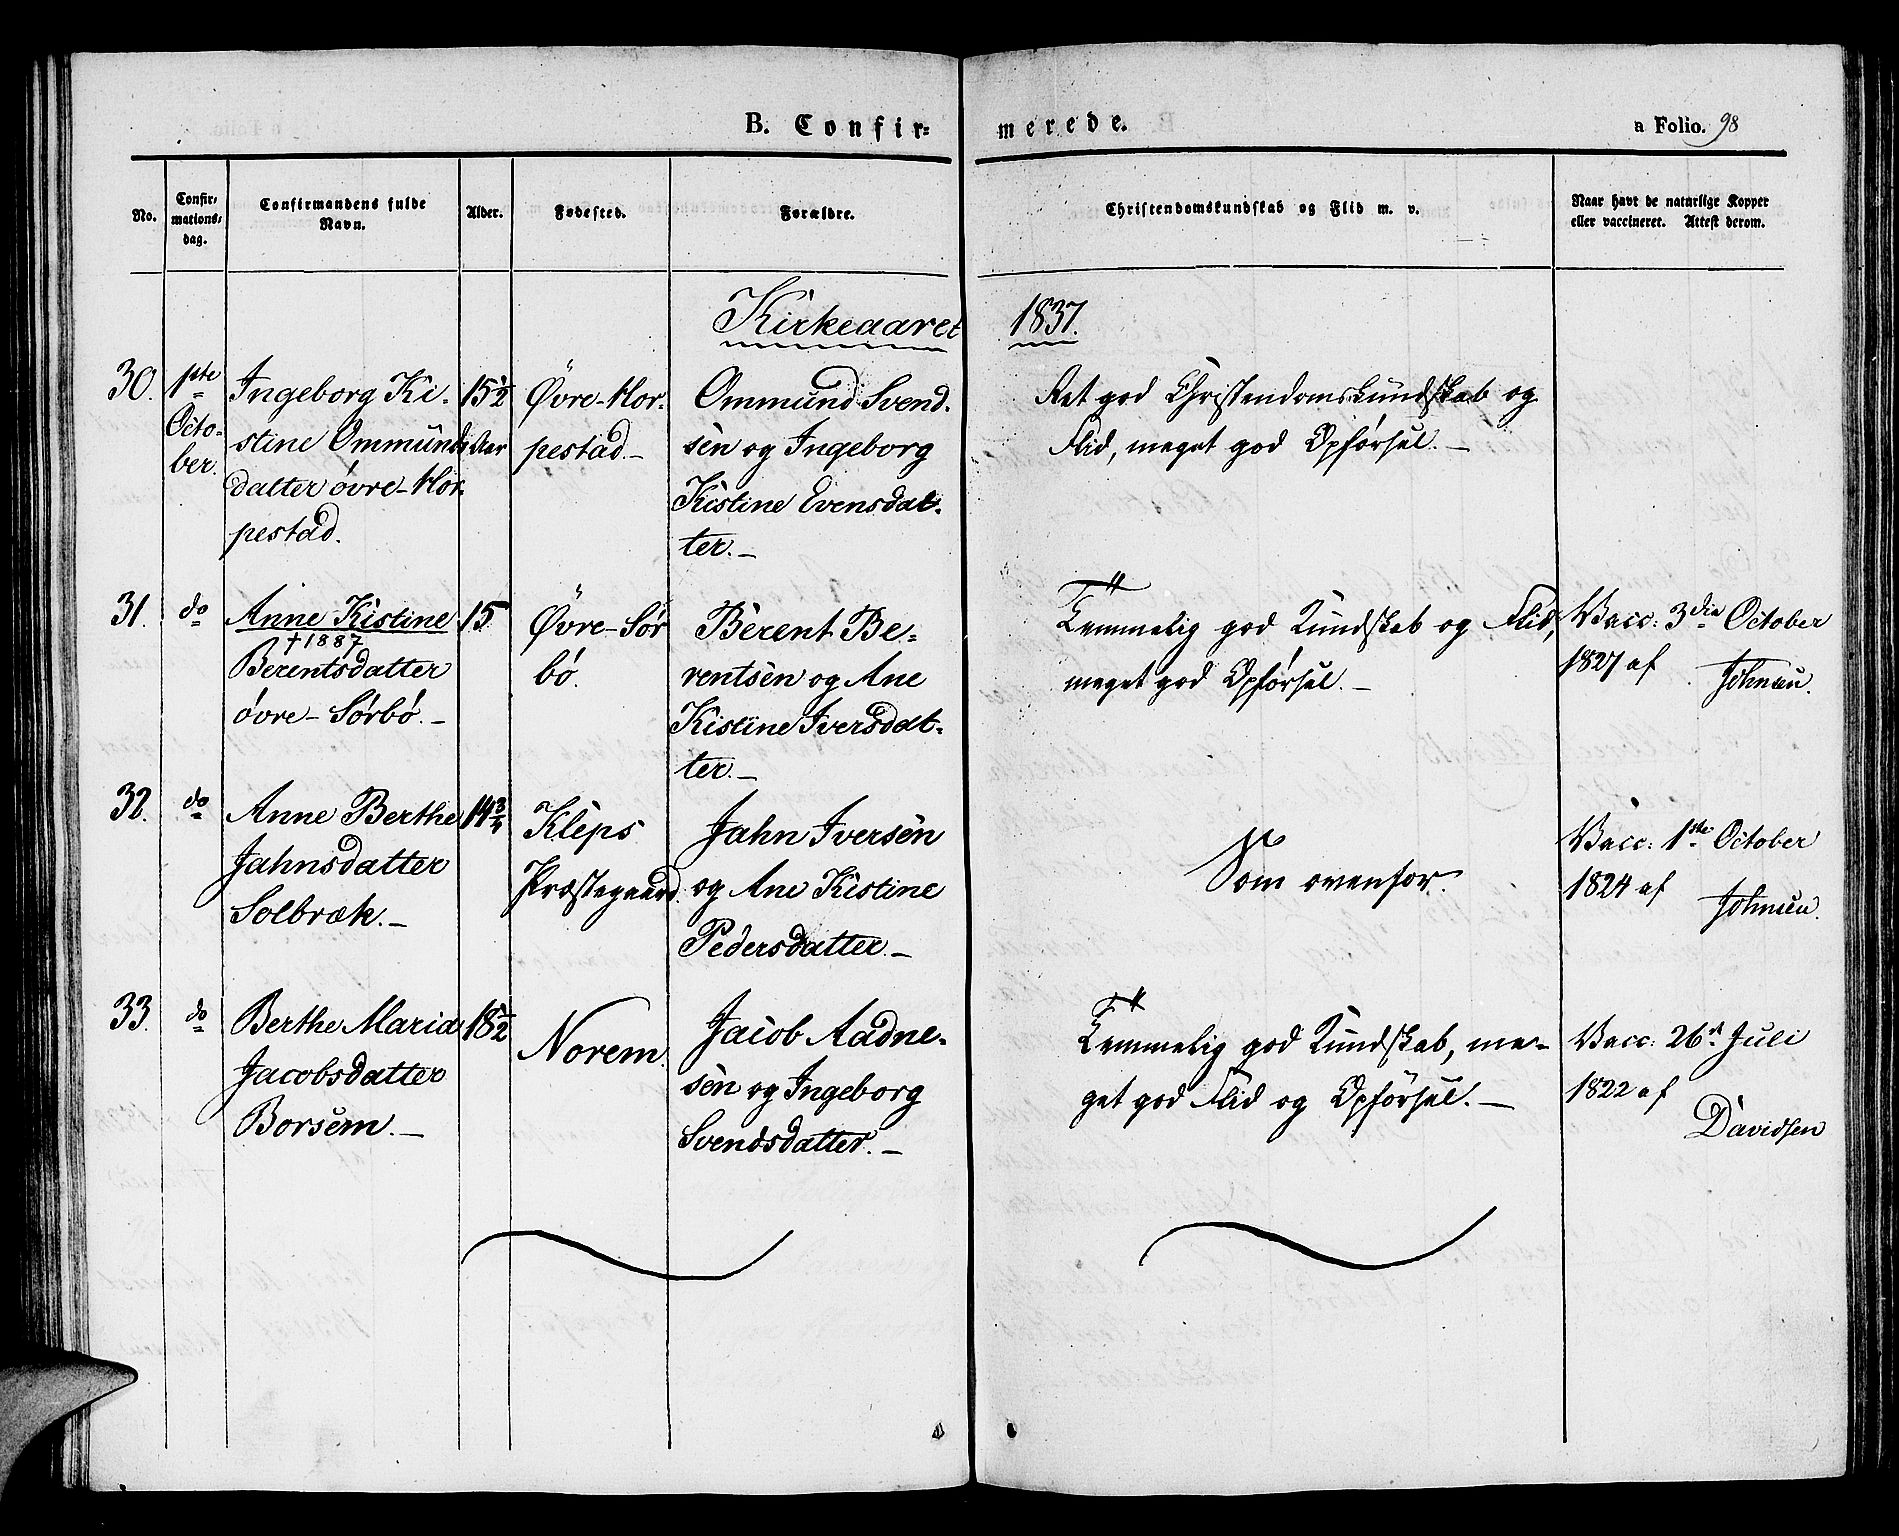 B. Confir=
merede.
a Folio. 98
No.
Confir-
mations-
dag.
Confirmandens fulde
Navn.
Alder.
Fødested.
Forældre.
Christendomskundskab og Flid m. v.
Naar havt de naturlige Kopper
eller vaccineret. Attest derom.
Kirkeaaret
1837.
30.
1ste
Octo-
ber.
Ingeborg Ki-
stine Ommunds
datter øvre-Hor-
pestad.
15½
Aar
Øvre-Hor-
pestad.-
Ommund Svend-
sen og Ingeborg
Kistine Evensdat-
ter.-
Ret god Christendomskundskab og
Flid, meget god Opførsel.-
31.
do
Anne Kistine
†1887
Berentsdatter
øvre-Sørbø.-
15
Øvre-Sør
bø.
Berent Be-
rentsen og Ane
Kistine Iversdat-
ter.-
Temmelig god Kundskab og Flid,
meget god Opførsel.-
Vacc: 3die October
1827 af
Johnsen.
32.
do
Anne Berthe
Jahnsdatter
Solbræk.-
14¾
Kleps
Præstegaard.
Jahn Iversen
og Ane Kistine
Pedersdatter.-
Som ovenfor.
Vacc: 1ste October
1824 af
Johnsen.
33.
do
Berthe Maria
Jacobsdatter
Borsem.-
18½
Norem.
Jacob Aadne-
sen og Ingeborg
Svendsdatter.-
Temmelig god Kundskab, me-
get god Flid og Opførsel.-
Vacc: 26d Juli
1822 af
Davidsen